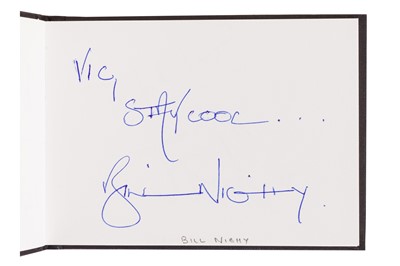 Vic,
STAY COOL....
Bill NIGHY.
BILL NIGHY